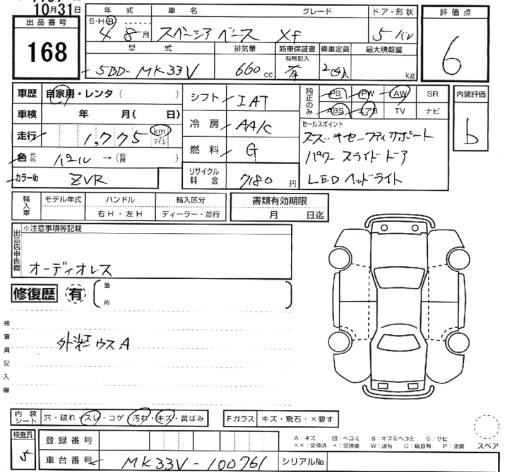 10月31日
出品番号
168
年式 車名 グレード ドア・形状
S・H・R 4 8月 スペーシア ベース XF 5 バン
型式 排気量 新車保証書 有無記入 乗車定員 最大積載量
5BD-MK33V 660cc 有 2(4)人 kg
評価点
6
車歴 自家用・レンタ( )
車検 年 月( 日)
走行 1,775 km マイル
色 パール →(
カラーNo ZVR
シフト IAT
冷房 AA/C
燃料 G
リサイクル料金 7180円
純正のみ PS PW AW SR
ABS エアB TV ナビ
セールスポイント
スズキセーフティサポート
パワースライドドア
LEDヘッドライト
内装評価
b
輸入車 モデル年式 ハンドル 輸入区分
年 右H・左H ディーラー・並行
書類有効期限
月 日迄
出品店申告欄
※注意事項等記載
オーディオレス
修復歴 有 箇所
検査員記入欄
ウスA
内装シート 穴・破れ・スレ・コゲ・汚れ・キズ・黄ばみ
Fガラス キズ・飛石・×要す
検査員 5
登録番号
車台番号 MK33V-100761
シリアルNo
A:キズ
スペア